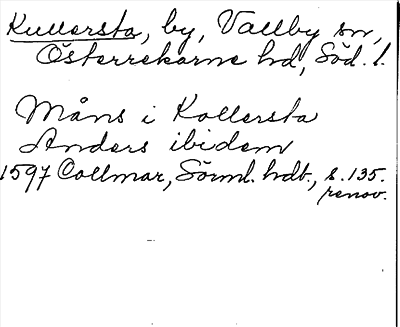 Kullersta, by, Vallby sn,
Österrekarne hd, Söd. l.
Måns i Kollersta
Anders ibidem
1597 Collmar, Sörml. hdl., s. 135.
renov.